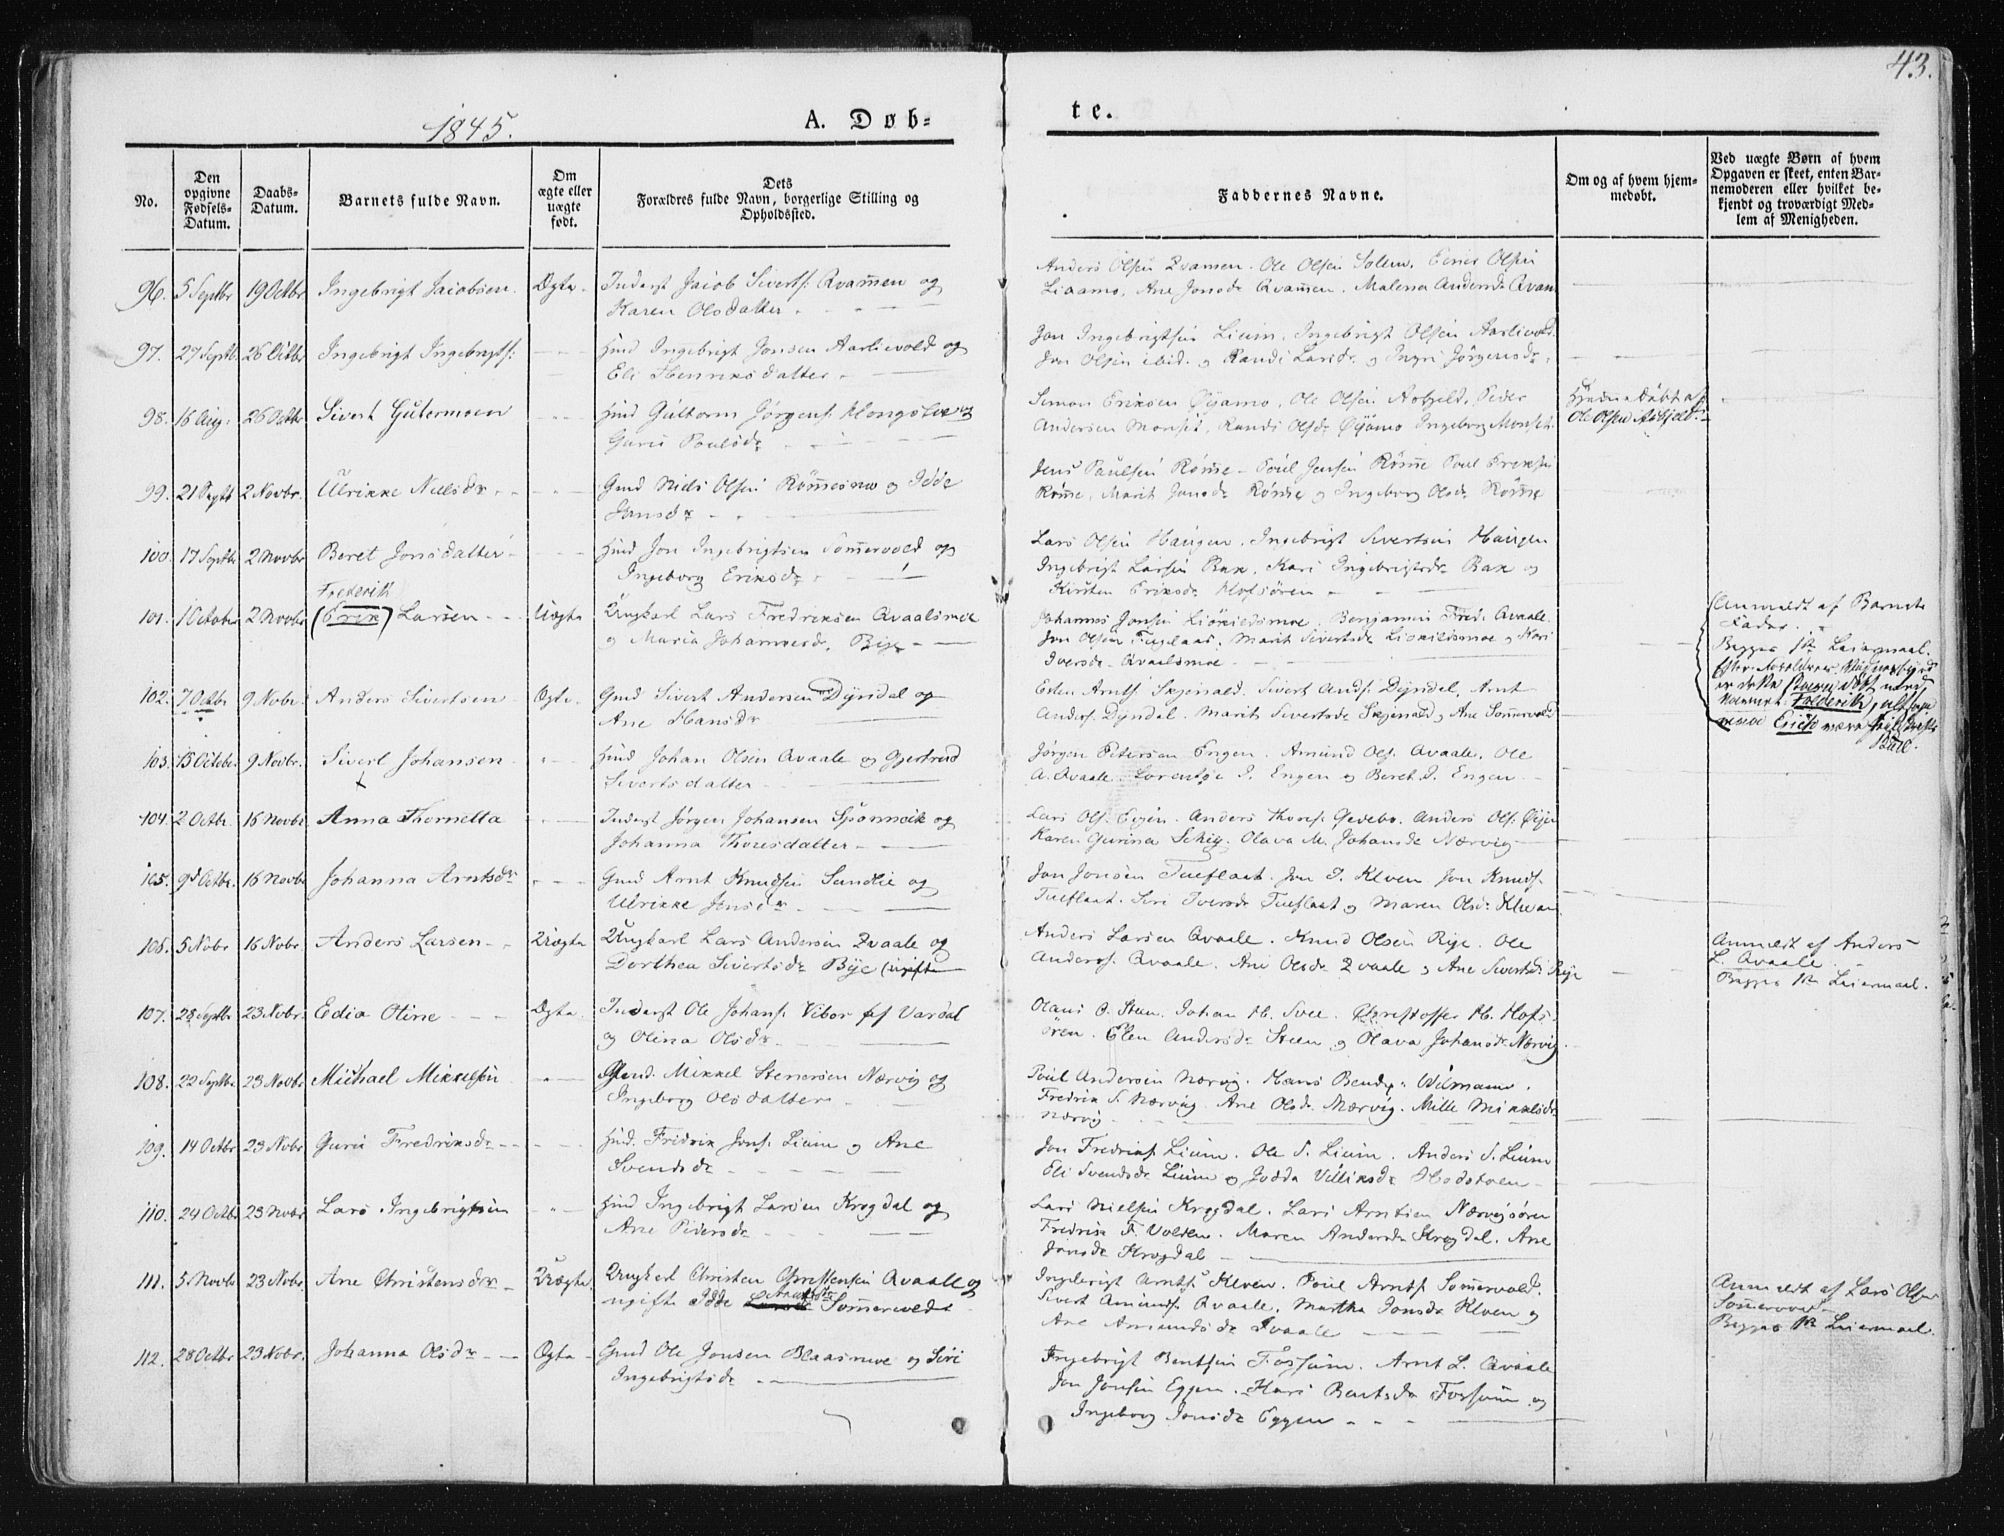 43.
1845.
A. Døb-
te.
No.
Den opgivne Fødsels-Datum.
Daabs-Datum.
Barnets fulde Navn.
Om ægte eller uægte født.
Dets Forældres fulde Navn, borgerlige Stilling og Opholdssted.
Faddernes Navne.
Om og af hvem hjem-medøbt.
Ved uægte Børn af hvem Opgaven er skeet, enten Bar-nemoderen eller hvilket be-kjendt og troværdigt Med-lem af Menigheden.
96. 5 Septbr 19 Octbr Ingebrigt Jacobsen Ægte Inderst Jacob Siverts: Qvammen og
Karen Olsdatter
Anders Olsen Qvamen. Ole Olsen Solem. Einer Olsen
Liaamo, Ane Jonsdr Qvammen. Malena Andersdr Qvam
97. 27 Septb. 26 Octbr Ingebrigt Ingebrigts: Huusd Ingebrigt Jonsen Aarlivold og
Eli Henriksdatter
Jon Ingebrigtsen Lium. Ingebrigt Olsen Aarlivold.
Jon Olsen ibid. og Randi Larsdr og Ingri Jörgensdr
98. 16 Aug. 26 Octbr Sivert Gutormsen Huusd Guttorm Jörgens:
Guru Poulsdr
Simon Eriksen Öyamo, Ole Olsen Aasfjeld, Peder
Andersen Monset, Randi Olsdr Öyamo Ingeborg Monset
Hjemmedöbt af
Ole Olsen Aasfjeld
99. 21 Septb 2 Novbr. Ulrikke Nielsdr Gmd Niels Olsen Römmesmo og
Jonsdr
Jens Paulsen Römme - Poul Jensen Römme Poul Eriksen
Römme, Marit Jonsdr Römme og Ingeborg Olsdr Römme
100. 17 Septbr 2 Novbr Beret Jonsdatter Huusd Jon Ingebrigtsen Sommervold og
Ingeborg Eriksdr
Lars Olsen Haugen. Ingebrigt Sivertsen Haugen
Ingebrigt Larsen Bak. Kari Ingebrigtsdr Bak og
Kirsten Eriksdr Hofsören
Frederik
101. 1 October 2 Novbr (Erik) Larsen Uægte Ungkarl Lars Fredriksen Qvaalsmoe
og Maria Johannesdr. Bye
Johannes Jonsen Liökieldsmoe. Benjamin Fred. Qvaale.
Jon Olsen Fuglaas. Marit Sivertsdr Liökieldsmoe og Kari
Iversdr Qvaalsmoe
Anmeldt af Barnets
Fader.
Begges 1ste Leiermaal.
102. 7 Octbr 9 Novbr Anders Sivertsen Ægte. Gmd Sivert Andersen Dyrdal og
Ane Hansdr
Esten Arnts: Skjersald. Sivert Ands: Dyrdal, Arnt
Anders: Dyrdal. Marit Sivertsdr Skjersald og Ane Sommervold
er dette Barn døbt med
Navnet Frederik, altsaa
Erich
103. 15 Octobr. 9 Novbr. Sivert Johansen Huusd Johan Olsen Qvaale og Gjertrud
Sivertsdatter
Jörgen Petersen Engen. Amund Ols: Qvaale. Ole
A. Qvaale. Lorentse J. Engen og Beret J. Engen
104. 2 Octbr. 16 Novbr. Anna Thornetta Inderst Jörgen Johansen og
Johanna Thoresdatter
Lars Ols: Anders Thores: Anders Ols: Öyen
Karen Gurina Schey. Olava M. Johansdr Nærvig
105. 9d Octbr. 16 Novbr Johanna Arntsdr Gmd Arnt Knudsen Sundlie og
Ulrikke Jonsdr
Jon Jonsen Tueflaat. Jon J. Kleven Jon Knuds:
Tueflaat. Siri Iversdr Tueflaat og Maren Olsdr Klevan
106. 5 Nobr 16 Nobr. Anders Larsen Uægte Ungkarl Lars Andersen Qvaale og
Dorthea Sivertsdr Bye (ugifte
Anders Larsen Qvaale. Knud Olsen Rye. Ole
Anders: Qvaale. Ane Olsdr Qvaale og Ane Sivertsdr Rye
Anmeldt af Anders
L. Qvaale.
Begges 1ste Leiermaal.
107. 28 Septbr 23 Novbr. Edia Oline Ægte. Inderst Ole Johans: Vibor af Vardal
og Olina Olsdr
Olaus O. Steen. Johan H. Svee. Christoffer H. Hofs-
ören. Elen Andersdr Steen og Olava Johansdr Nærvig
108. 22 Septbr 23 Novbr Michael Mikkelsen Gmd. Mikkel Stenersen Nærvig og
Ingeborg Olsdatter
Poul Andersen Nærvig. Hans Bendix Wilmann.
Fredrik S. Nærvig. Ane Olsdr Nærvig. Mille Mikkelsdr
Nærvig
109. 14 Octbr 23 Nobr Guru Fredriksdr Huusd. Fredrik Jons: Lium og Ane
Svendsdr
Jon Fredriks: Lium. Ole S. Lium. Anders S. Lium
Eli Svendsdr Lium og Jødda Villiksdr
110. 24 Octbr 23 Novbr Lars Ingebrigtsen Huusd Ingebrigt Larsen Krogdal og
Ane Pedersdr
Lars Nielsen Krogdal. Lars Arntsen Nærvigsören
Fredrik F. Volden. Maren Andersdr Krogdal. Ane
Jonsdr Krogdal
111. 5 Novbr 23 Nobr. Ane Christensdr Uægte. Ungkarl Christen Christensen Qvaale og
ugifte Sommervold
Ingebrigt Arnts: Kleven. Poul Arnts: Sommervold.
Sivert Amunds: Qvaale. Martha Jonsdr Kleven og
Ane Amundsdr Qvaale
Anmeldt af Lars Olsen
Sommervold
Begges 1ste Leiermaal.
112. 28 Octbr 23 Nobr. Johanna Olsdr Ægte Gmd Ole Jonsen Blaasmoe og Siri
Ingebrigtsdr
Ingebrigt Bentsen Fossum. Arnt L. Qvaale
Jon Jonsen Eggen. Kari Bentsdr Fossum og
Ingeborg Jonsdr Eggen